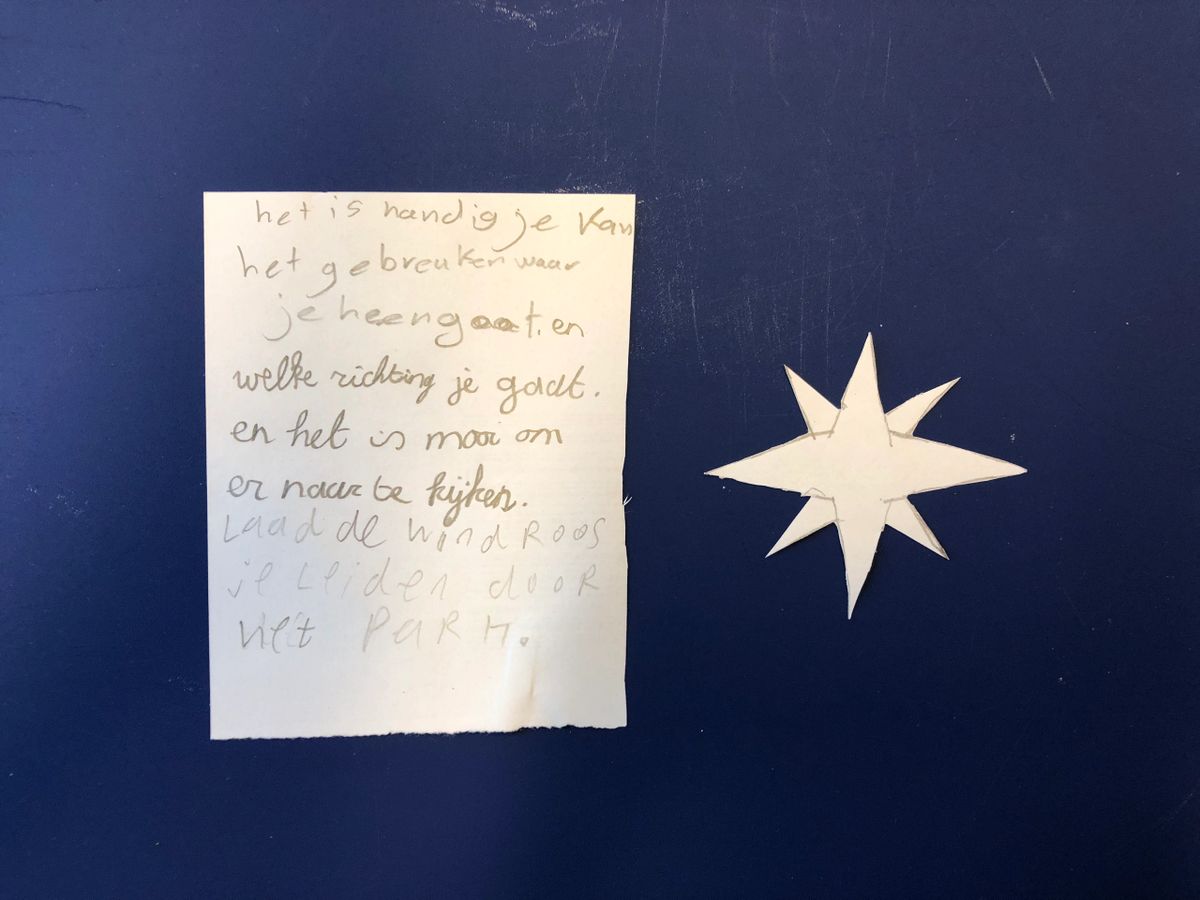 het is handig je kan
het gebreuken waar
je heen gaat. en
welke richting je gadt.
en het is mooi om
er naar te kijken.
Laad de wind Roos
je Leiden dooR
het PaRk.